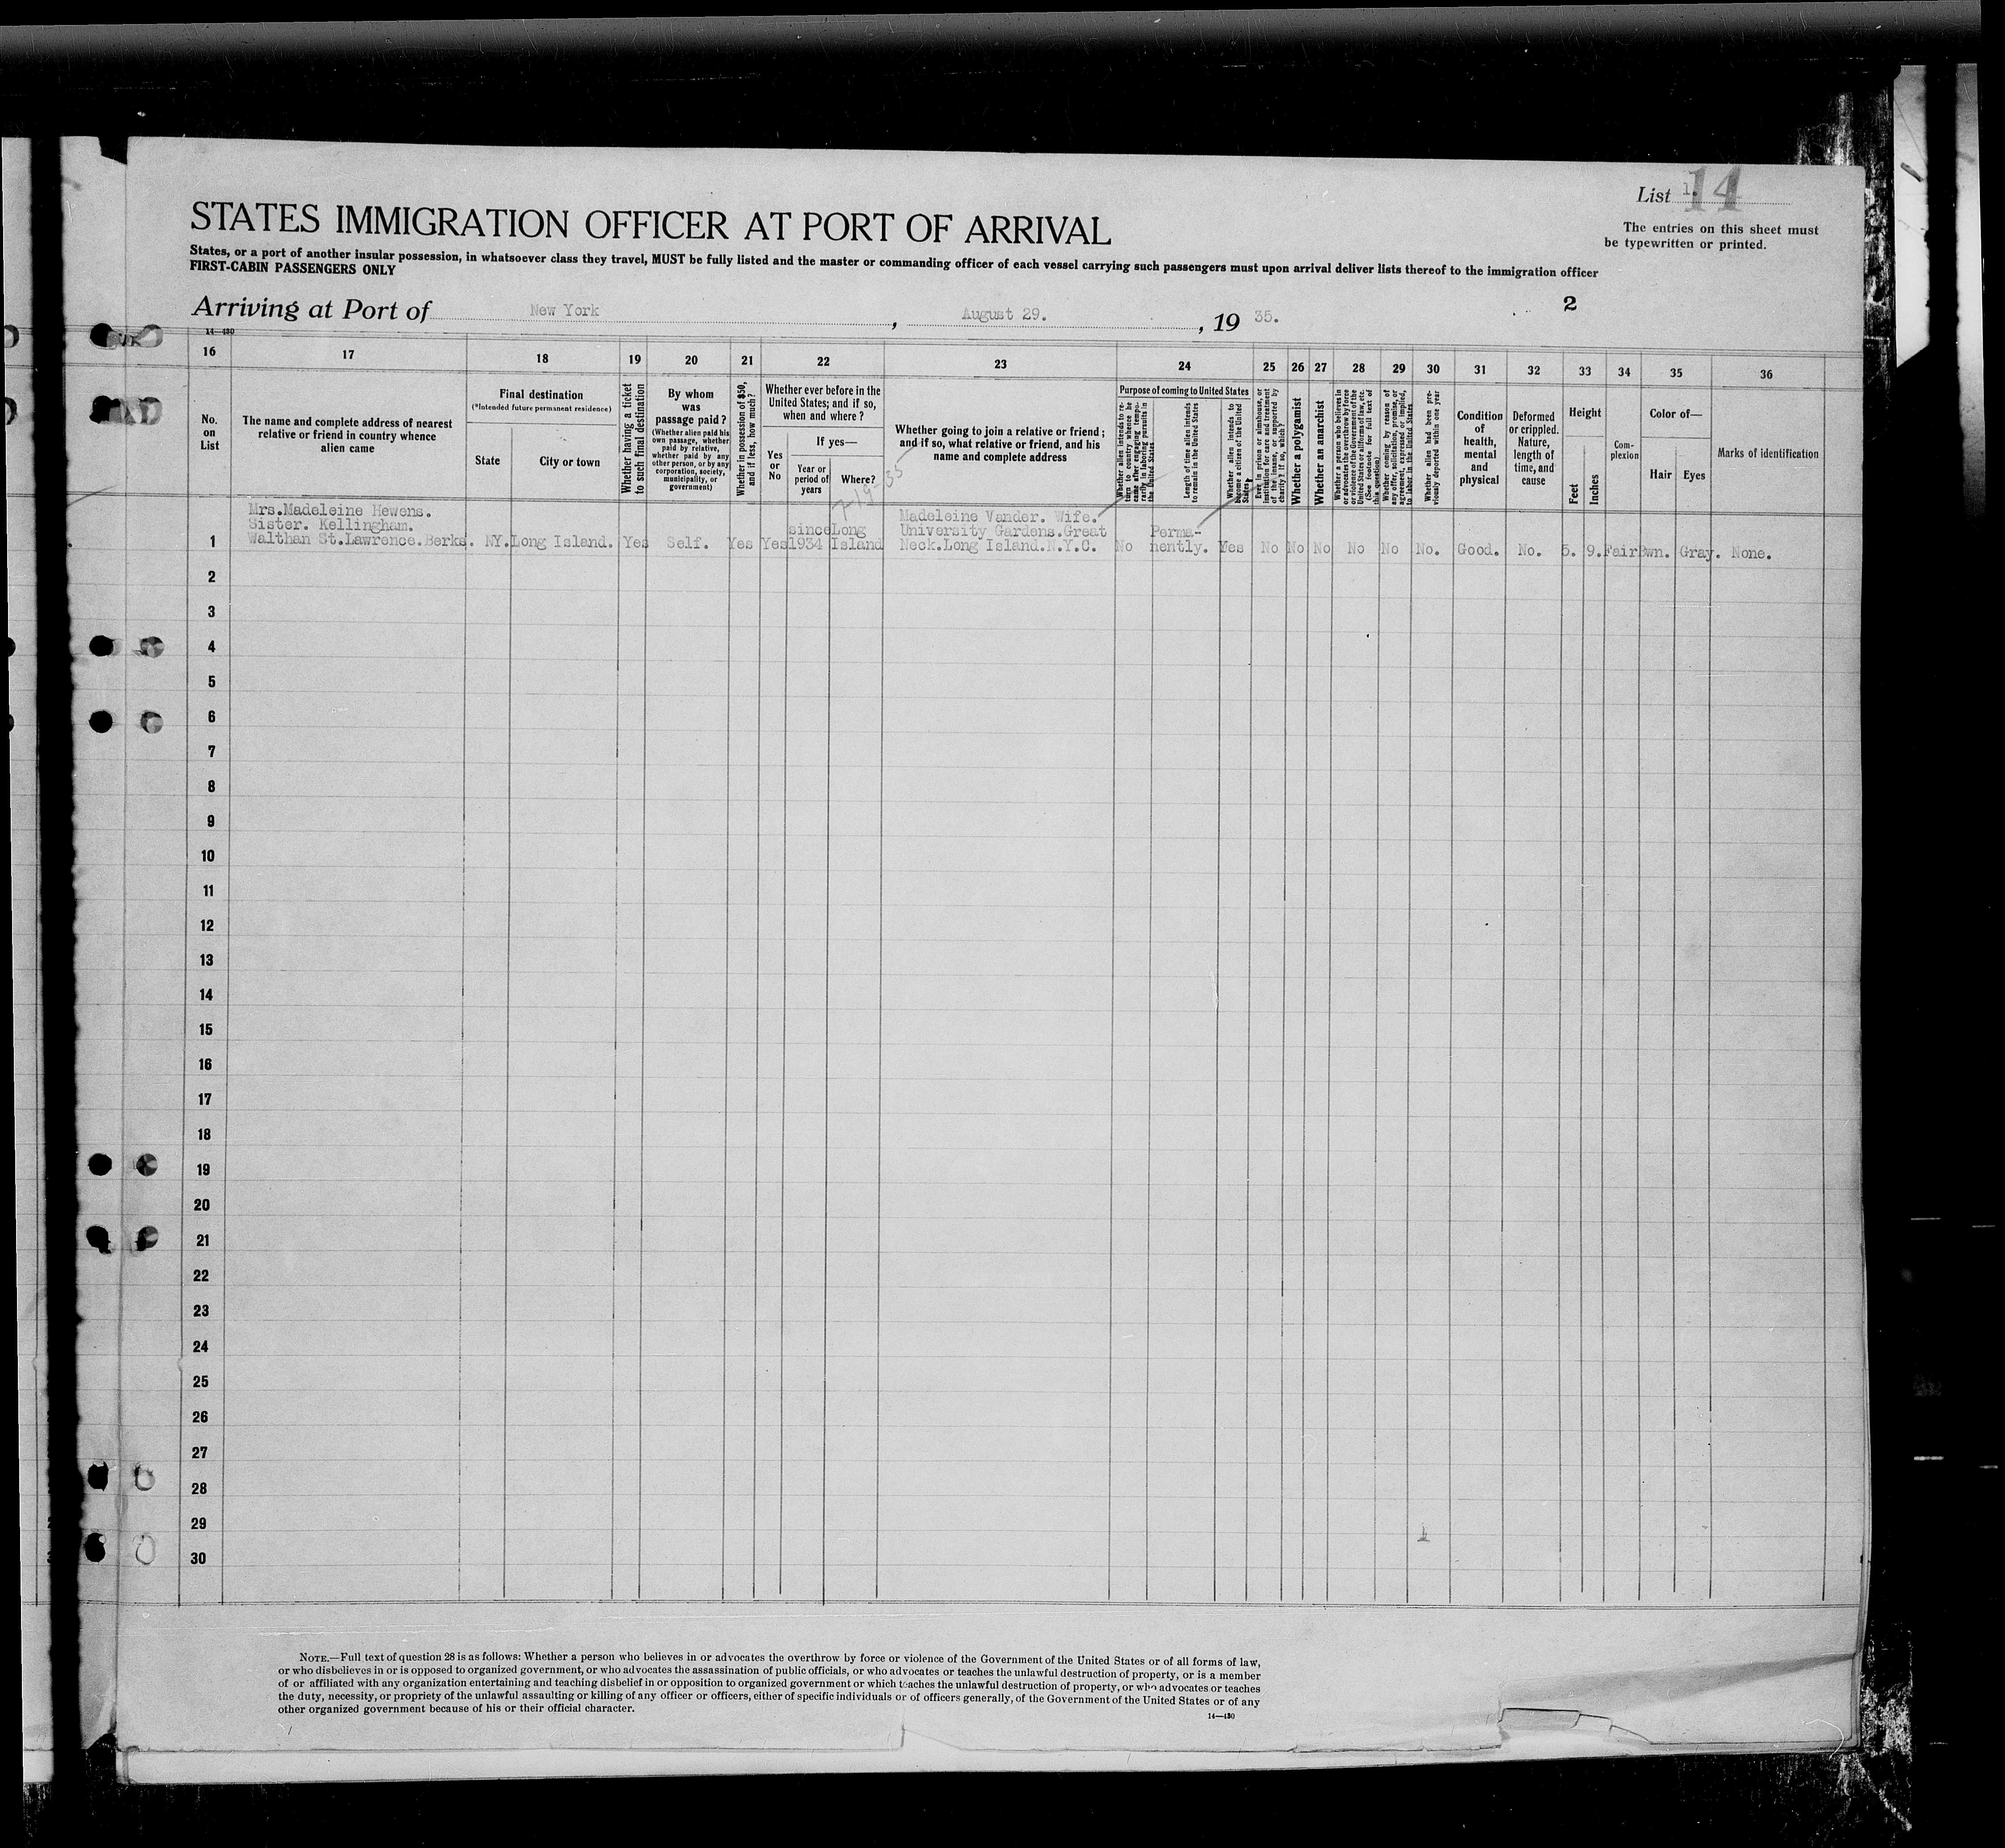 List 1. 14
The entries on this sheet must
be typewritten or printed.
STATES IMMIGRATION OFFICER AT PORT OF ARRIVAL
States, or a port of another insular possession, in whatsoever class they travel, MUST be fully listed and the master or commanding officer of each vessel carrying such passengers must upon arrival deliver lists thereof to the immigration officer
FIRST-CABIN PASSENGERS ONLY
Arriving at Port of New York, August 29., 19 35.
2
14—430
16 17 18 19 20 21 22 23 24 25 26 27 28 29 30 31 32 33 34 35 36
No. on List
The name and complete address of nearest
relative or friend in country whence
alien came
Final destination
(*Intended future permanent residence)
State
City or town
Whether having a ticket
to such final destination
By whom
was
passage paid?
(Whether alien paid his
own passage, whether
paid by relative,
whether paid by any
other person, or by any
corporation, society,
municipality, or
government)
Whether in possession of $50,
and if less, how much?
Whether ever before in the
United States; and if so,
when and where?
Yes
or
No
If yes—
Year or
period of
years
Where?
7-19-35
Whether going to join a relative or friend;
and if so, what relative or friend, and his
name and complete address
Purpose of coming to United States
Whether alien intends to re-
turn to country whence he
came after engaging tempo-
rarily in laboring pursuits in
the United States
Length of time alien intends
to remain in the United States
Whether alien intends to
become a citizen of the United
States
Ever in prison or almshouse, or
institution for care and treatment
of the insane, or supported by
charity? If so, which?
Whether a polygamist
Whether an anarchist
Whether a person who believes in
or advocates the overthrow by force
or violence of the Government of the
United States or all forms of law, etc.
(See footnote for full text of
this question)
Whether coming by reason of
any offer, solicitation, promise, or
agreement, expressed or implied,
to labor in the United States
Whether alien had been pre-
viously deported within one year
Condition
of
health,
mental
and
physical
Deformed
or crippled.
Nature,
length of
time, and
cause
Height
Feet
Inches
Com-
plexion
Color of—
Hair
Eyes
Marks of identification
Mrs.Madeleine Hewens.
Sister. Kellingham.
Walthan St.Lawrence.Berks.
1
NY. Long Island. Yes Self. Yes Yes
since
1934
Long
Island
Madeleine Vander. Wife.
University Gardens.Great
Neck.Long Island.N.Y.C.
No
Perma-
nently.
Yes No No No No No No. Good. No. 5. 9. Fair Bwn. Gray. None.
2
3
4
5
6
7
8
9
10
11
12
13
14
15
16
17
18
19
20
21
22
23
24
25
26
27
28
29
30
NOTE.—Full text of question 28 is as follows: Whether a person who believes in or advocates the overthrow by force or violence of the Government of the United States or of all forms of law,
or who disbelieves in or is opposed to organized government, or who advocates the assassination of public officials, or who advocates or teaches the unlawful destruction of property, or is a member
of or affiliated with any organization entertaining and teaching disbelief in or opposition to organized government or which teaches the unlawful destruction of property, or who advocates or teaches
the duty, necessity, or propriety of the unlawful assaulting or killing of any officer or officers, either of specific individuals or of officers generally, of the Government of the United States or of any
other organized government because of his or their official character.
14—430